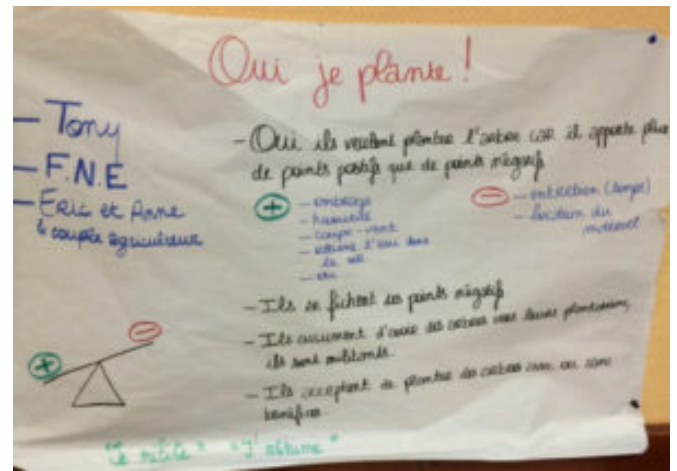 Oui je plante !
- Tony
- F.N.E
- Eric et Anne
↳ couple agriculteur
- Oui ils veulent planter l'arbre car il apporte plus
de points positifs que de points négatifs
+
- ombrage
- humidité
- coupe-vent
- retient l'eau dans
le sol
- etc
-
- entretien (temps)
- location du
matériel
- Ils se fichent des points négatifs
- Ils assument d'avoir des arbres dans leurs plantations,
ils sont militants.
- Ils acceptent de planter des arbres avec ou sans
bénéfices
+
-
"Je milite" "J'assume"